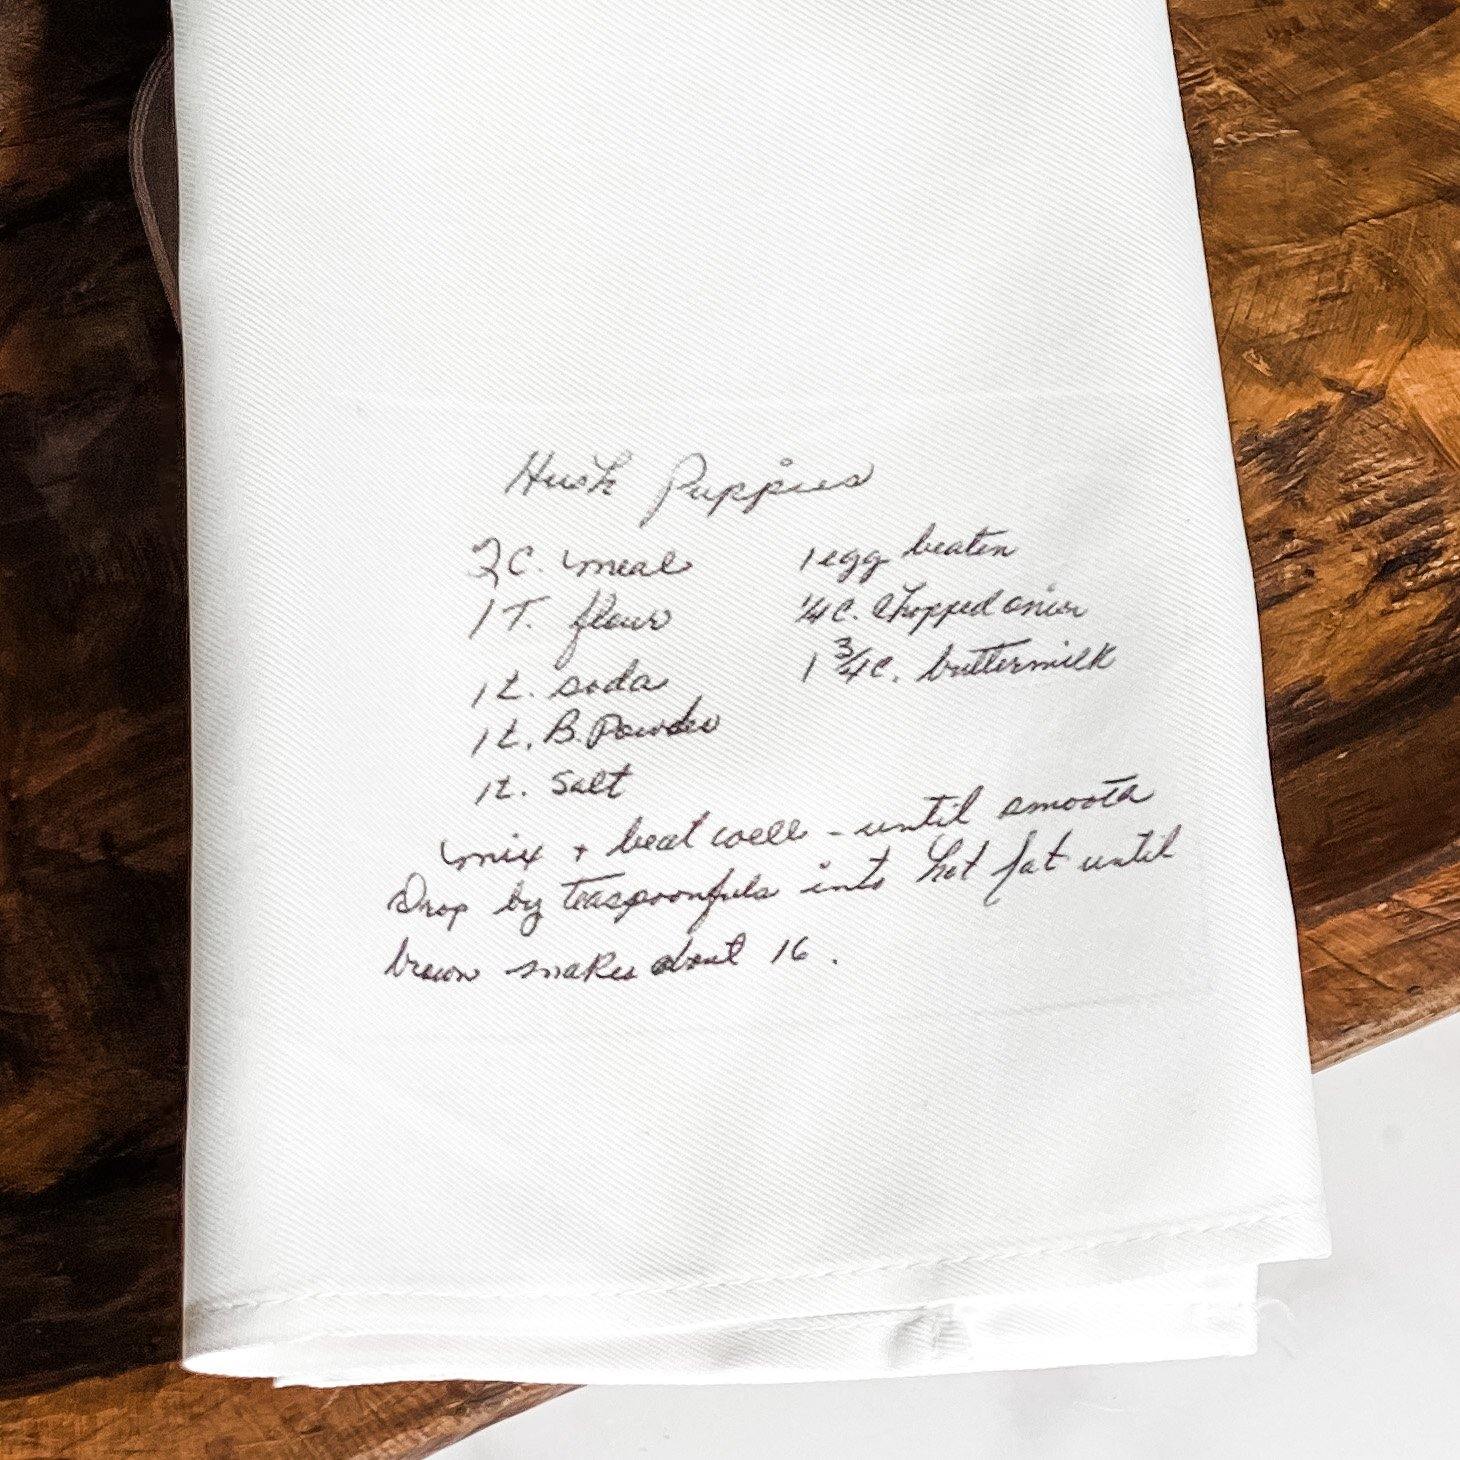 Hush Puppies
2 C. meal
1 T. flour
1 t. soda
1 t. B. Powder
1 t. Salt
1 egg beaten
1/4 c. chopped onion
1 3/4 c. buttermilk
mix + beat well - until smooth
Drop by teaspoonfuls into hot fat until
brown makes about 16.